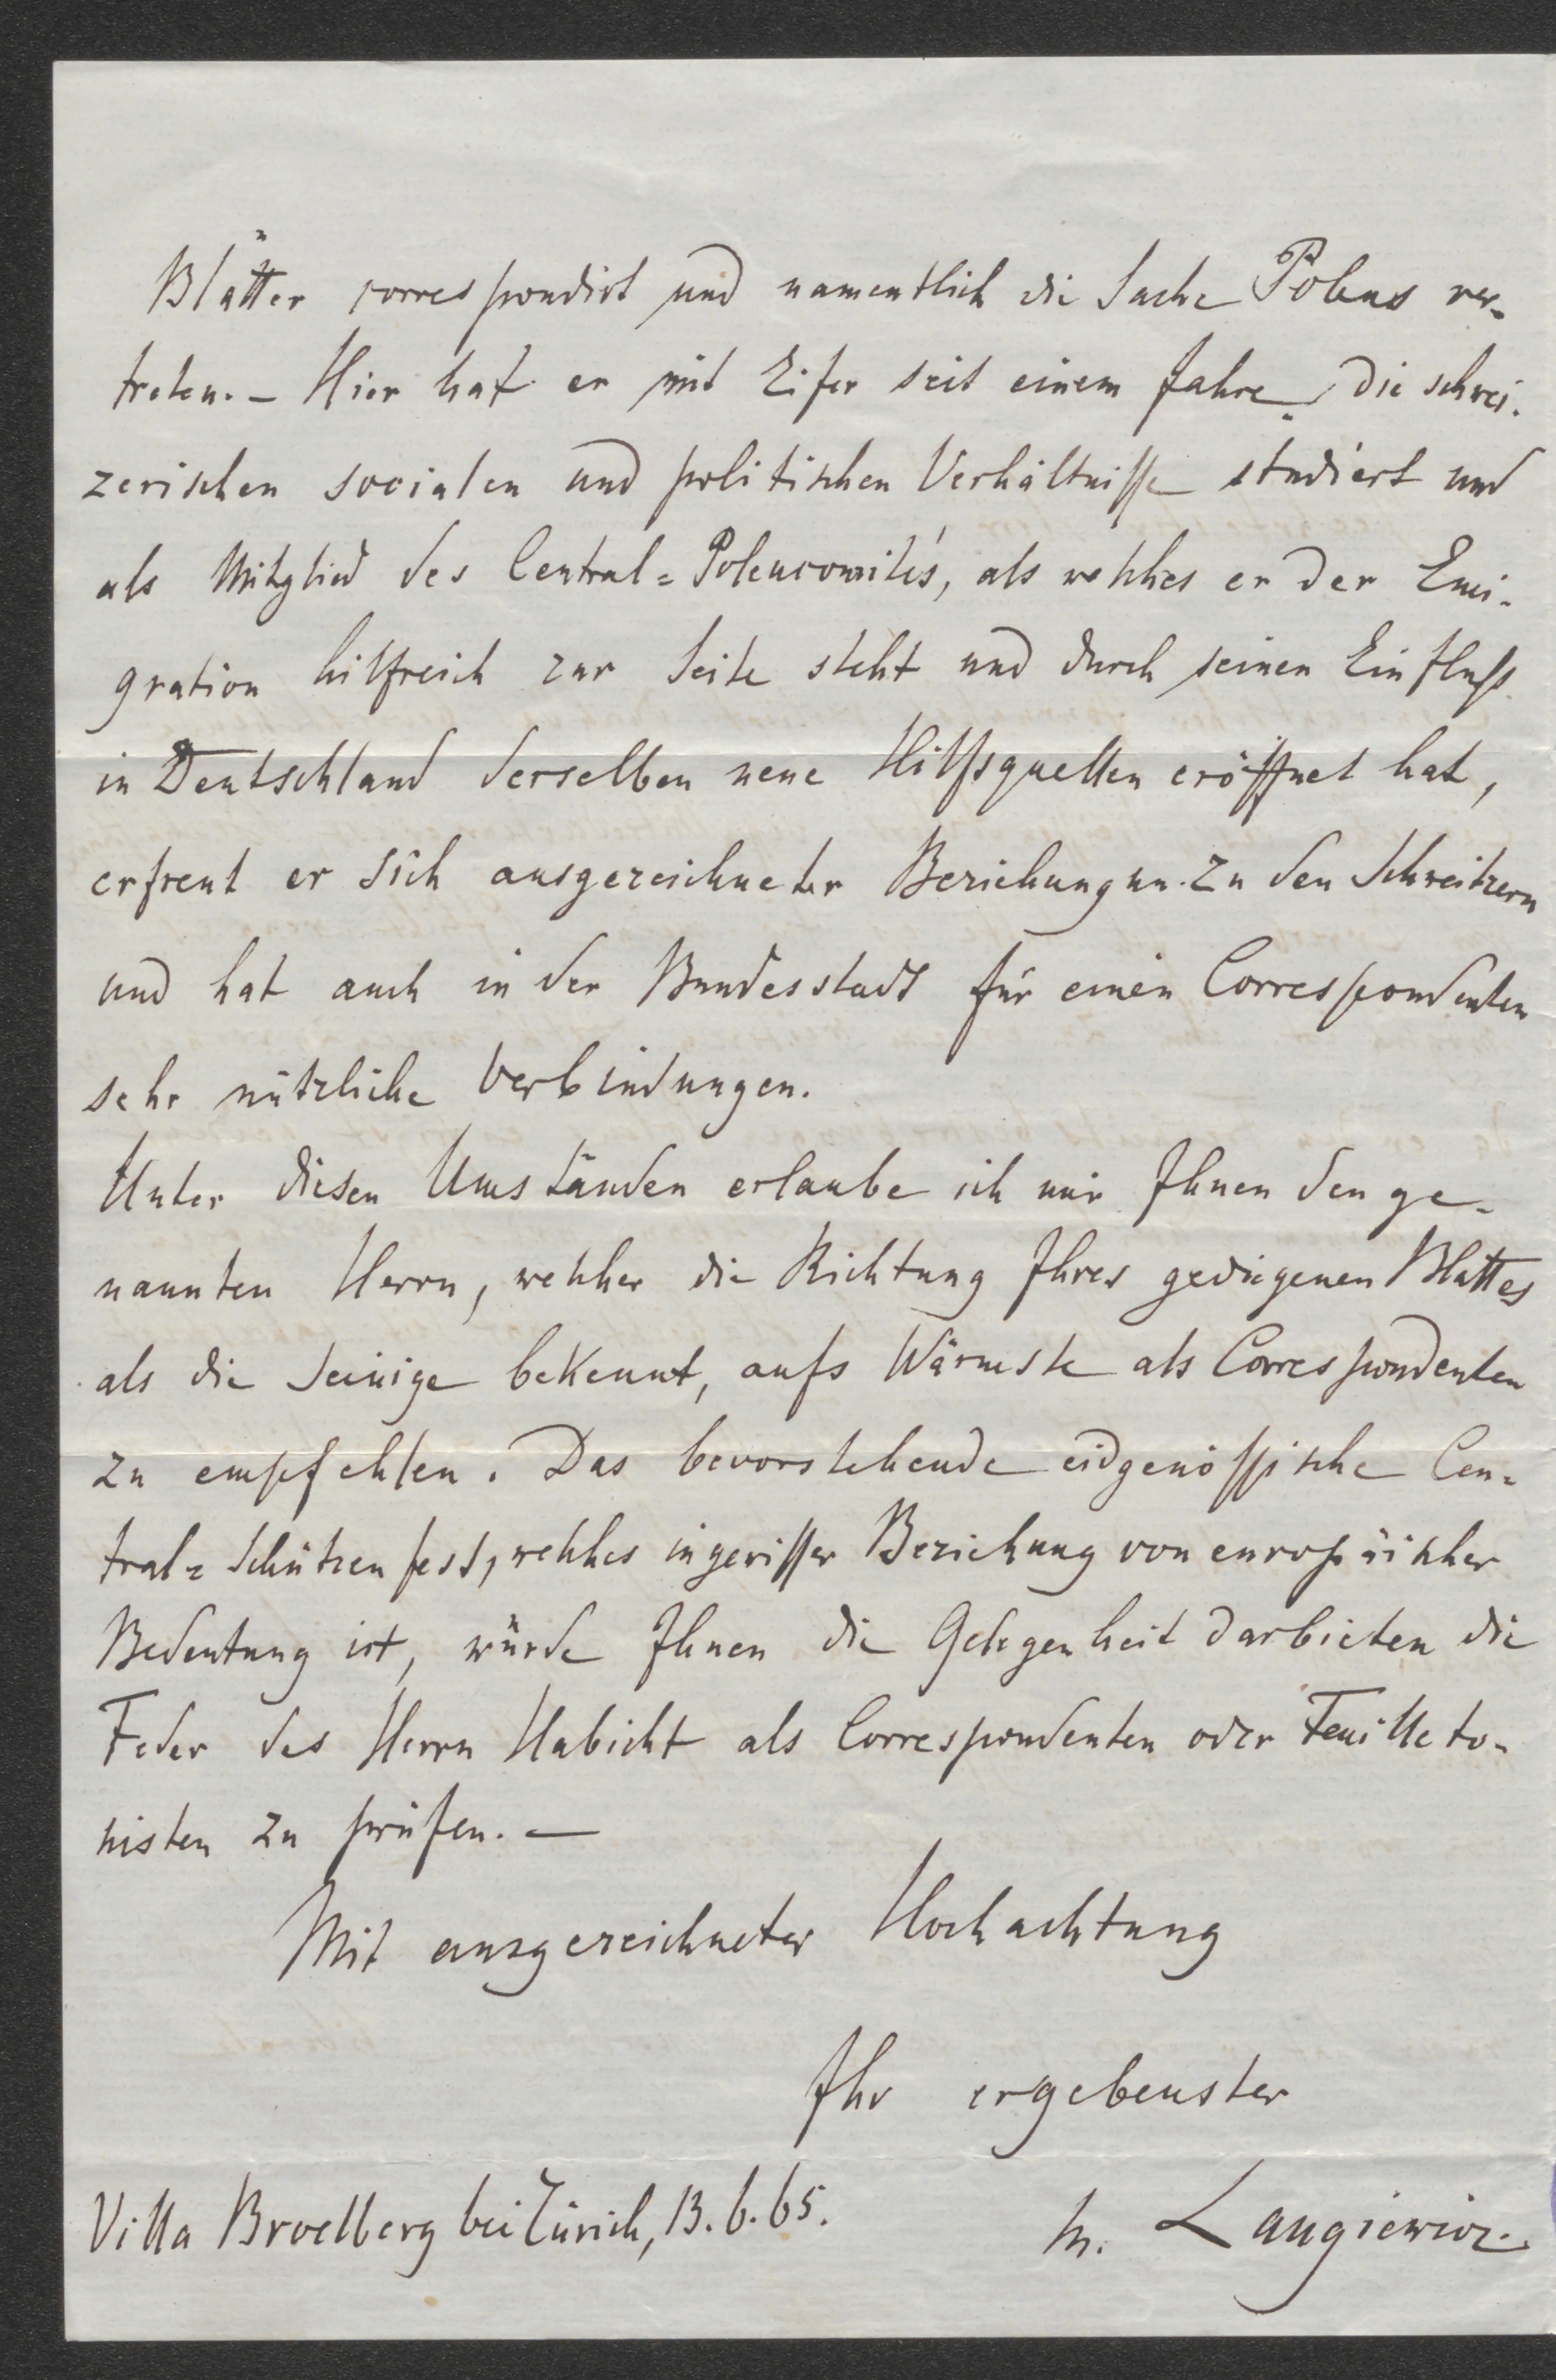 Blätter correspondirt und namentlich die Sache Polens ver-
treten. – Hier hat er mit Eifer seit einem Jahre die schwei-
zerischen socialen und politischen Verhältnisse studiert und
als Mitglied des Central-Polencomités, als welches er der Emi-
gration hilfreich zur Seite steht und durch seinen Einfluss
in Deutschland derselben neue Hilfsquellen eröffnet hat,
erfreut er sich ausgezeichneter Beziehungen zu den Schweitzern
und hat auch in der Bundesstadt für einen Correspondenten
sehr nützliche Verbindungen.
Unter diesen Umständen erlaube ich mir Ihnen den ge-
nannten Herrn, welcher die Richtung Ihres gediegenen Blattes
als die Seinige bekennt, aufs Wärmste als Correspondenten
zu empfehlen. Das bevorstehende eidgenössische Cen-
tral-Schützenfest, welches in gewisser Beziehung von europäischer
Bedeutung ist, würde Ihnen die Gelegenheit darbieten die
Feder des Herrn Habicht als Correspondenten oder Feuilleto-
nisten zu prüfen. –
Mit ausgezeichneter Hochachtung
Ihr ergebenster
Villa Broelberg bei Zürich, 13. 6. 65.
M. Langiewicz.